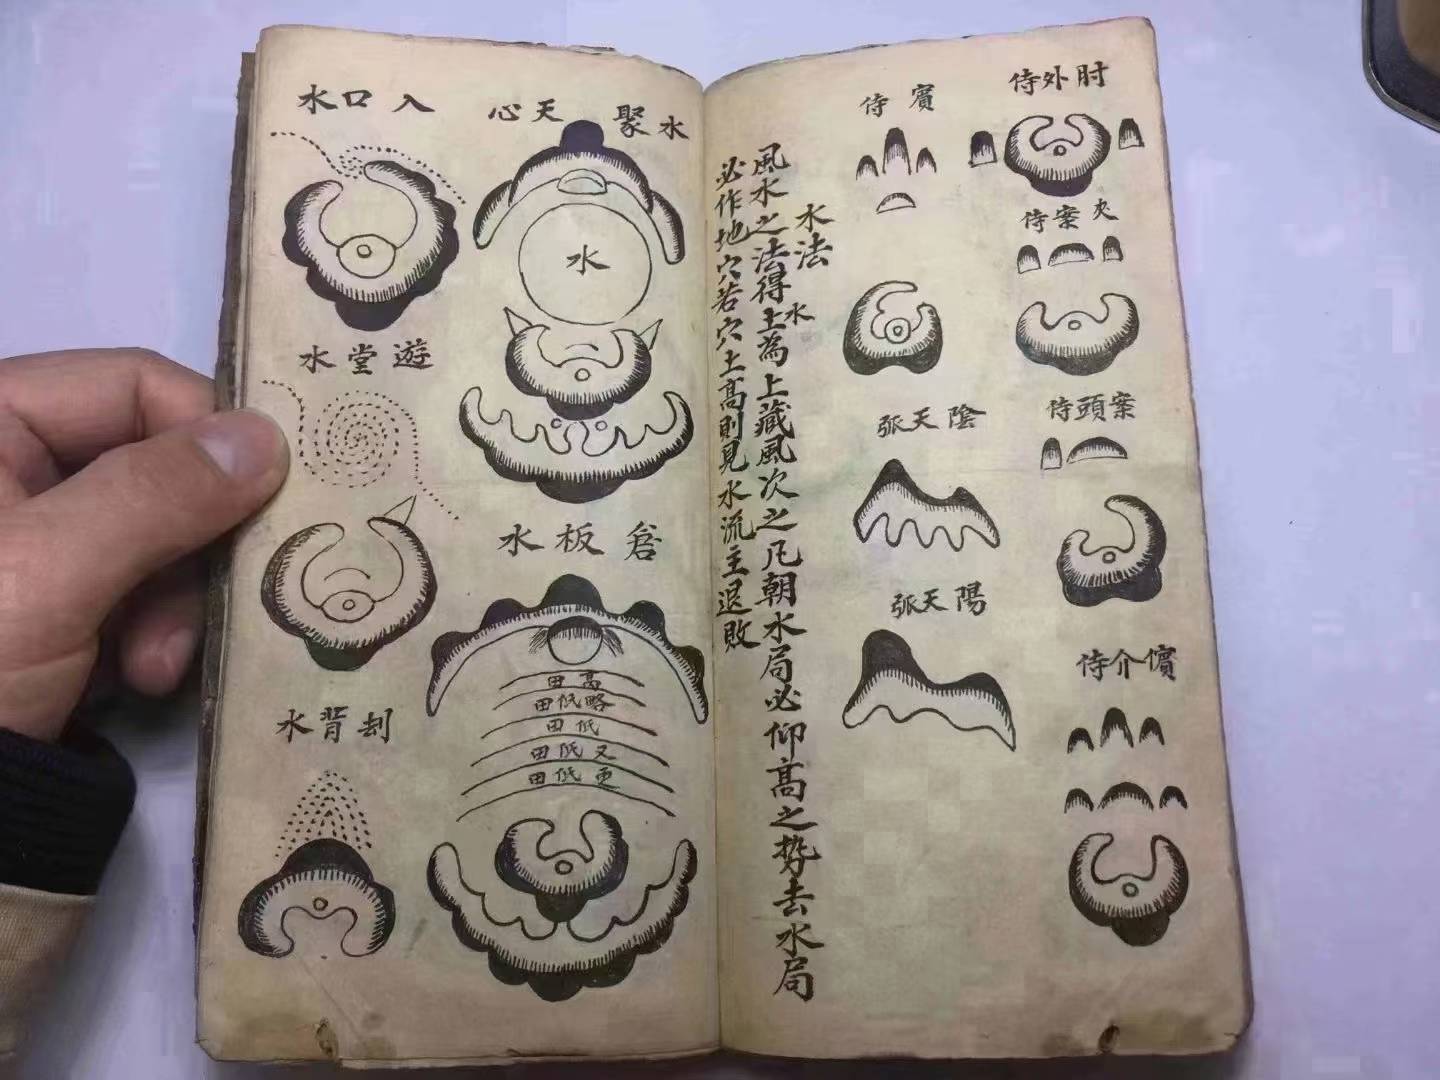 肘外侍
夾案侍
案頭侍
儐介侍
賓侍
陰天弧
陽天弧
水法
風水之法得水為上藏風次之凡朝水局必仰高之勢去水局
必作地穴若穴土高則見水流主退敗
水聚天心
水
倉板水
高田
略低田
低田
又低田
更低田
入口水
遊堂水
刦背水